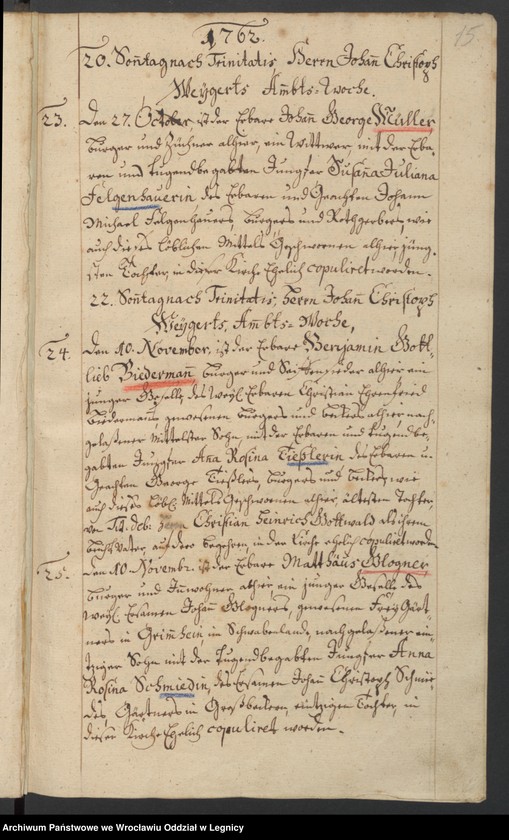 1762.
15
20. Sonntag nach Trinitatis, Herrn Johañ Christoph
Weygerts Ambts-Woche.
23. Den 27. October, ist der Erbare Johañ George Müller
burger und Züchner alhier, ein Wittwer, mit der Erba-
ren und tugendbegabten Jungfer Susaña Juliana
Felgenhauerin des Erbaren und Geachten Johann
Michael Felgenhauers, burgers und Rothgerbers, wie
auch dieses löblichen Mittels Geschwornen alhier jüng-
sten Tochter, in dieser Kirche Ehelich copuliret worden.
22. Sonntag nach Trinitatis, Herrn Johañ Christoph
Weygerts, Ambts-Woche,
24. Den 10. November, ist der Erbare Benjamin Gott-
lieb Biedermañ burger und Seiffensieder alhier ein
junger Geselle, des weyl. Erbaren Christian Ehrenfried
Biedermañs, gewesenen burgers und alhier, nach-
gelaßener mittelster Sohn, mit der Erbaren und tugendbe-
gabten Jungfer Aña Rosina Tießlerin des Erbaren u.
Geachten George Tießlers, burgers und wie
auch dieses löbl. Mittels Geschwornen alhier, ältesten Tochter,
von Tit. deb: Herrn Christian Heinrich Gottwald als ihrem
Beichtvater, auf der begehren, in der Kirche ehelich copuliret worden.
25. Den 10. Novembr. ist der Erbare Matthäus Glogner
burger und Inwohner alhier ein junger Geselle des
weyl. Ersamen Johañ Glogners, gewesenen Frey Gärt-
ners in Grimhein, in Schwabenlande, nachgelaßener ein-
tziger Sohn mit der tugendbegabten Jungfer Anna
Rosina Schmiedin, des Ersamen Johañ Christoph Schmidt
des Gärtners in Großbeckern, eintzigen Tochter, in
dieser Kirche Ehelich copuliret worden.
Archiwum Państwowe we Wrocławiu Oddział w Legnicy